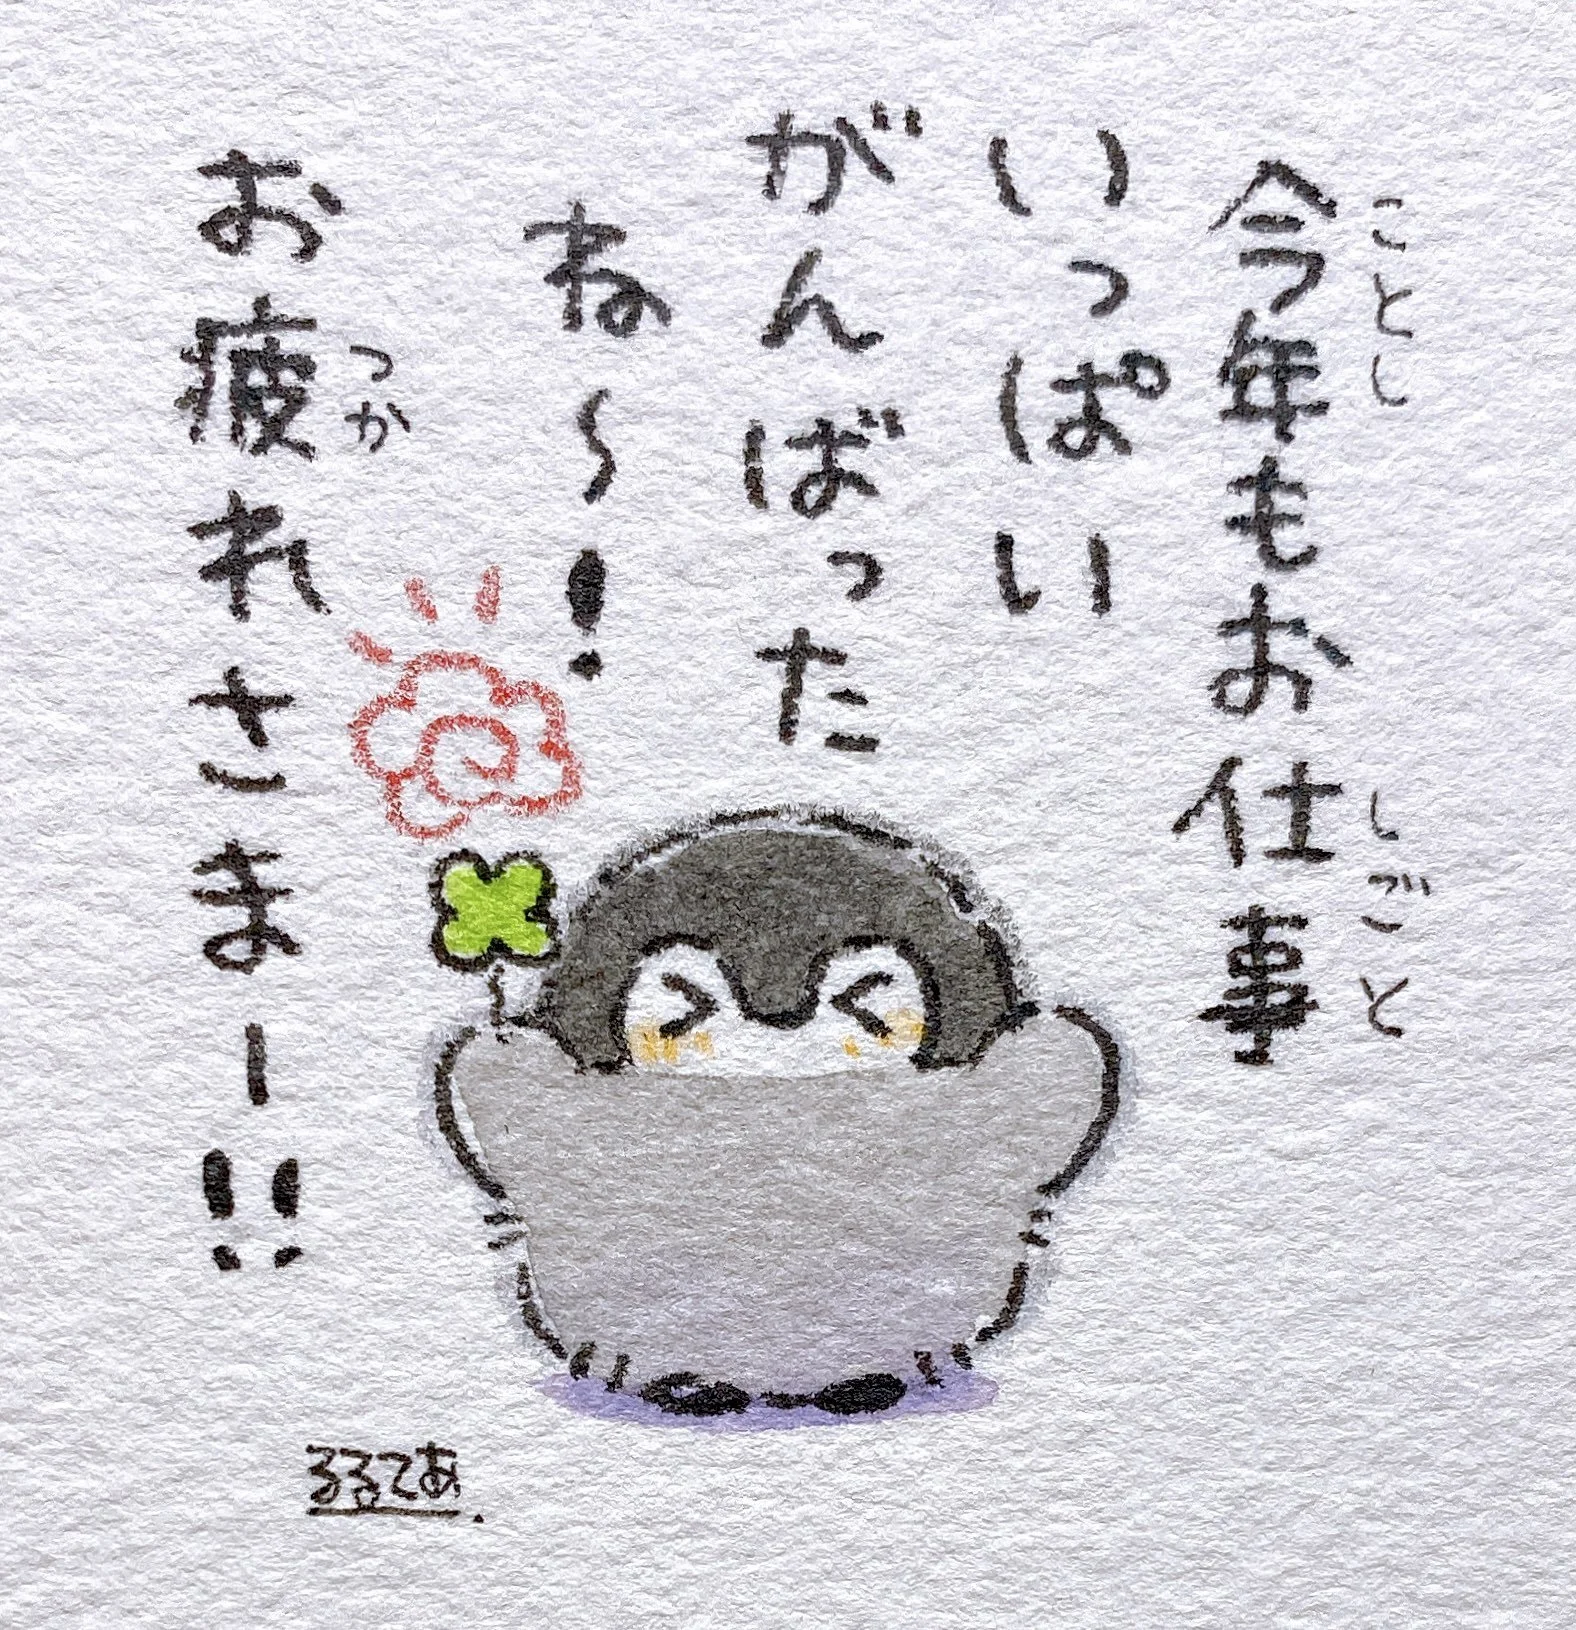 今年もお仕事
ことし
しごと
いっぱい
がんばった
ね〜！
お疲れさまー!!
つか
るるてあ.